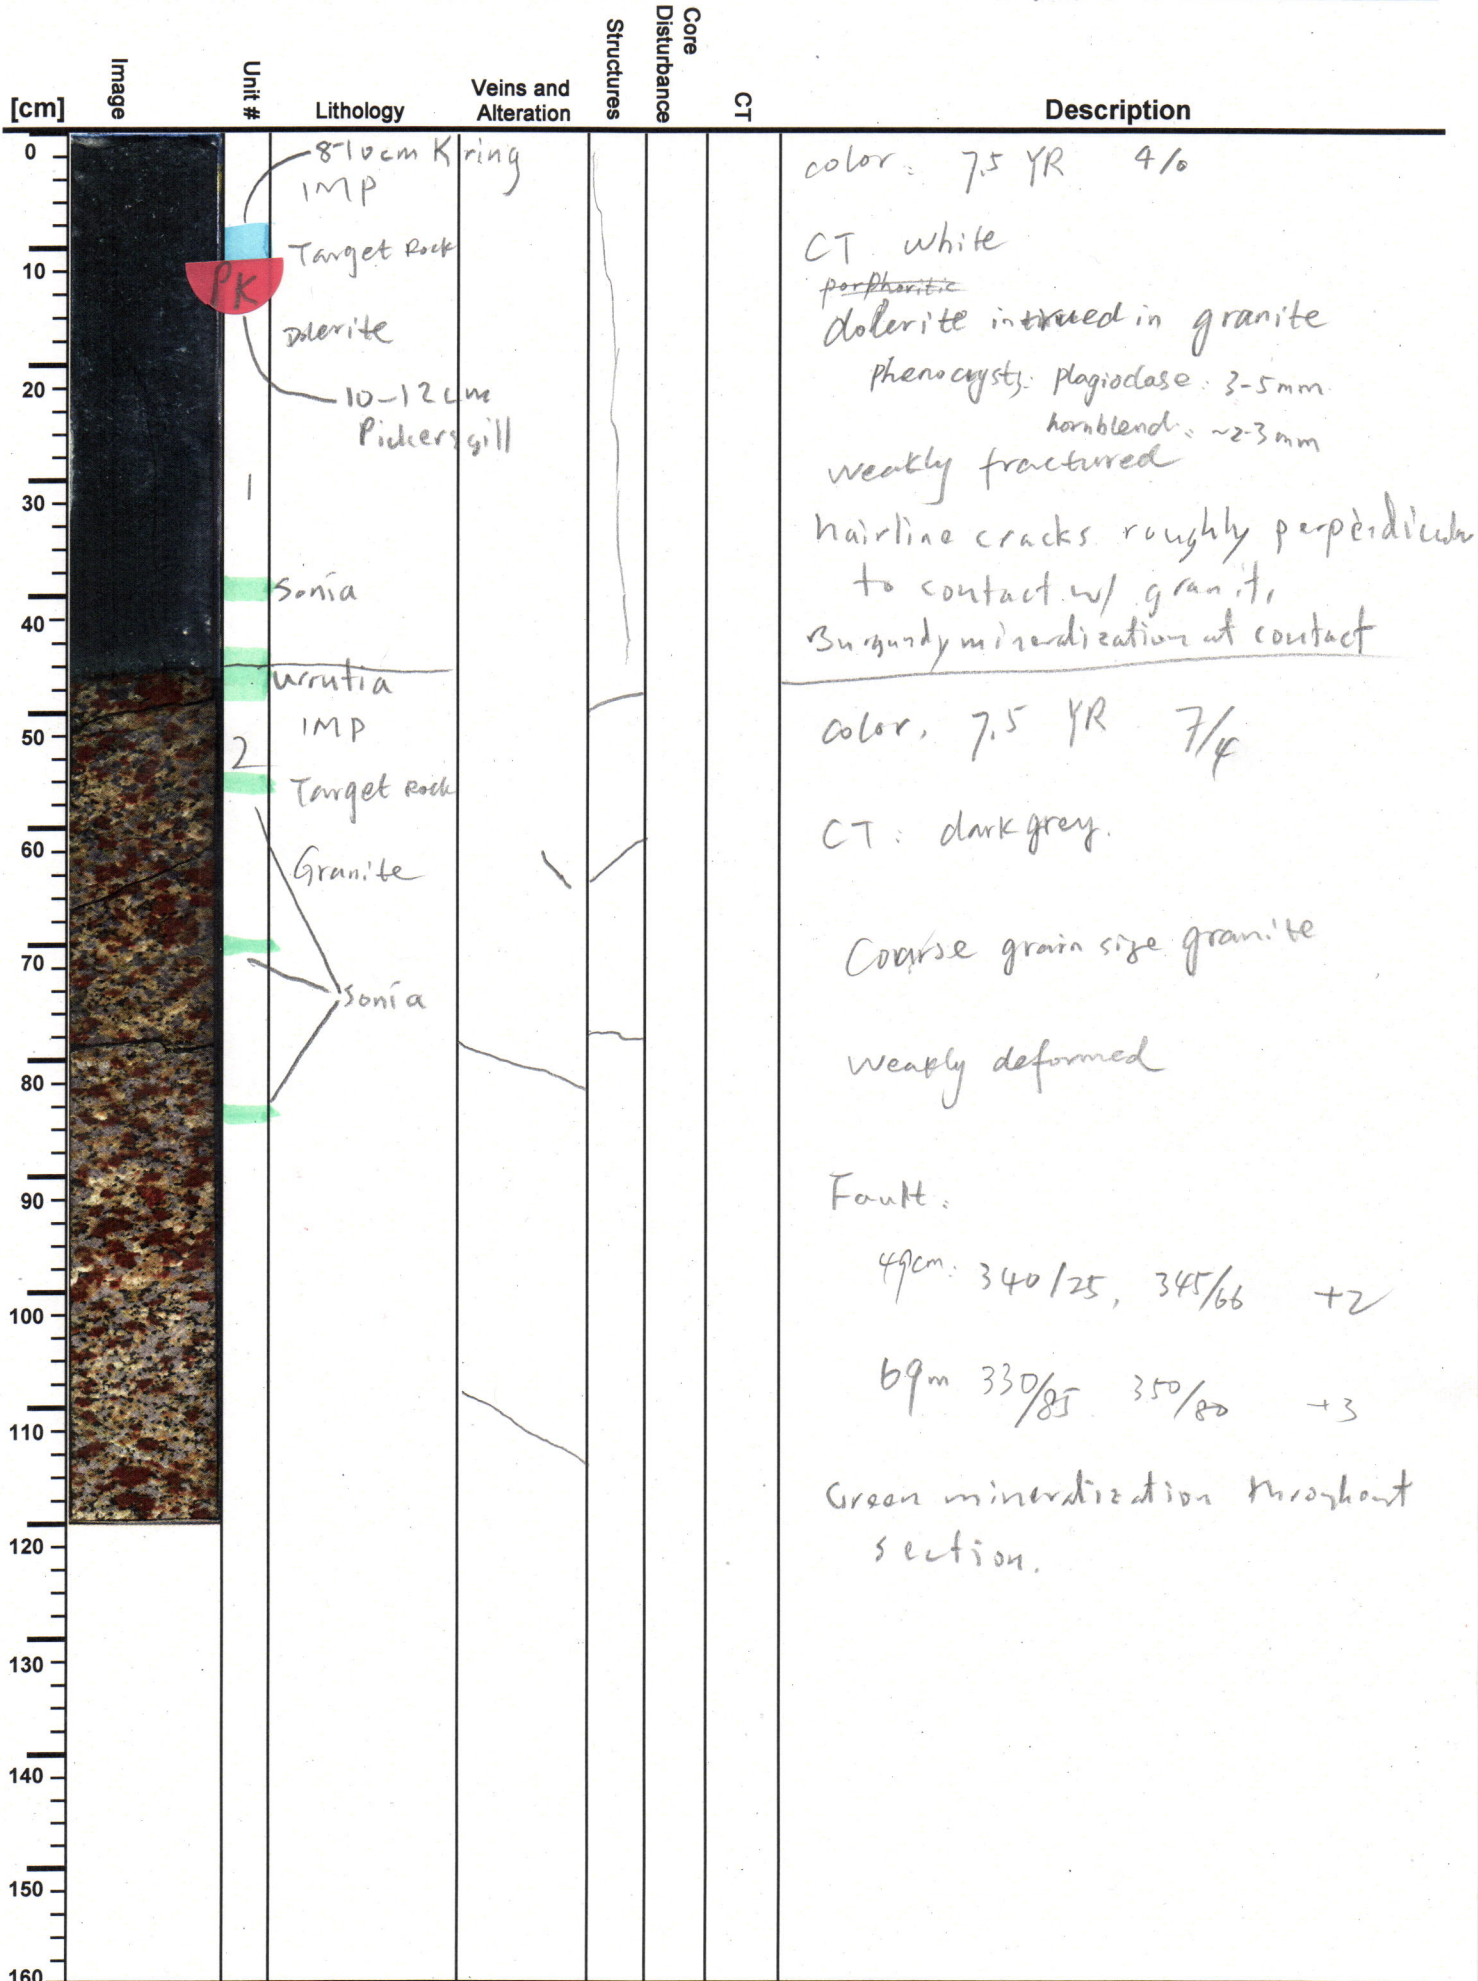 [cm]
Image
Unit #
Lithology
Veins and
Alteration
Structures
Core
Disturbance
CT
Description
0
10
20
30
40
50
60
70
80
90
100
110
120
130
140
150
160
8-10cm Kring
IMP
Target Rock
PK
Dolerite
10-12cm
Pickersgill
1
Sonía
Urrutia
IMP
2
Target Rock
Granite
Sonía
color: 7.5 YR 4/0
CT white
porphoritic
dolerite intrued in granite
phenocrysts: plagioclase: 3-5mm
hornblend: ~2-3mm
weakly fractured
hairline cracks roughly perpendicular
to contact w/ granite
Burgundy mineralization at contact
color, 7.5 YR 7/4
CT: dark grey.
Coarse grain size granite
weakly deformed
Fault:
49cm: 340/25, 345/66 +2
69m 330/85 350/80 +3
Green mineralization throughout
section.